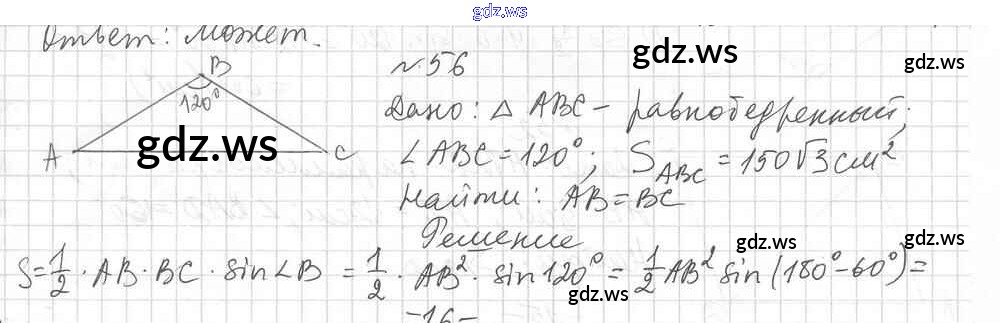 gdz.ws
Ответ: может.
gdz.ws
gdz.ws
B
120°
A
C
gdz.ws
№56
Дано: △ ABC – равнобедренный;
∠ABC = 120°; S_ABC = 150√3 см²
Найти: AB = BC
Решение
gdz.ws
gdz.ws
S = 1/2 · AB · BC · sin∠B = 1/2 · AB² · sin 120° = 1/2 AB² sin(180° – 60°) =
gdz.ws
gdz.ws
–16–